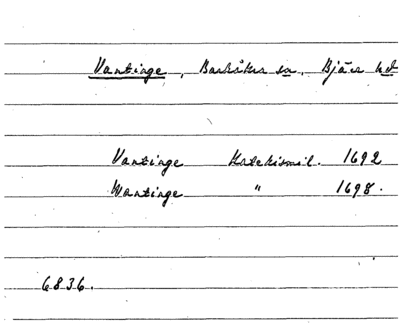 Vantinge, Barkåkra sn. Bjäre hd
Vantinge Katekismil. 1692
Wantinge " 1698.
6836.